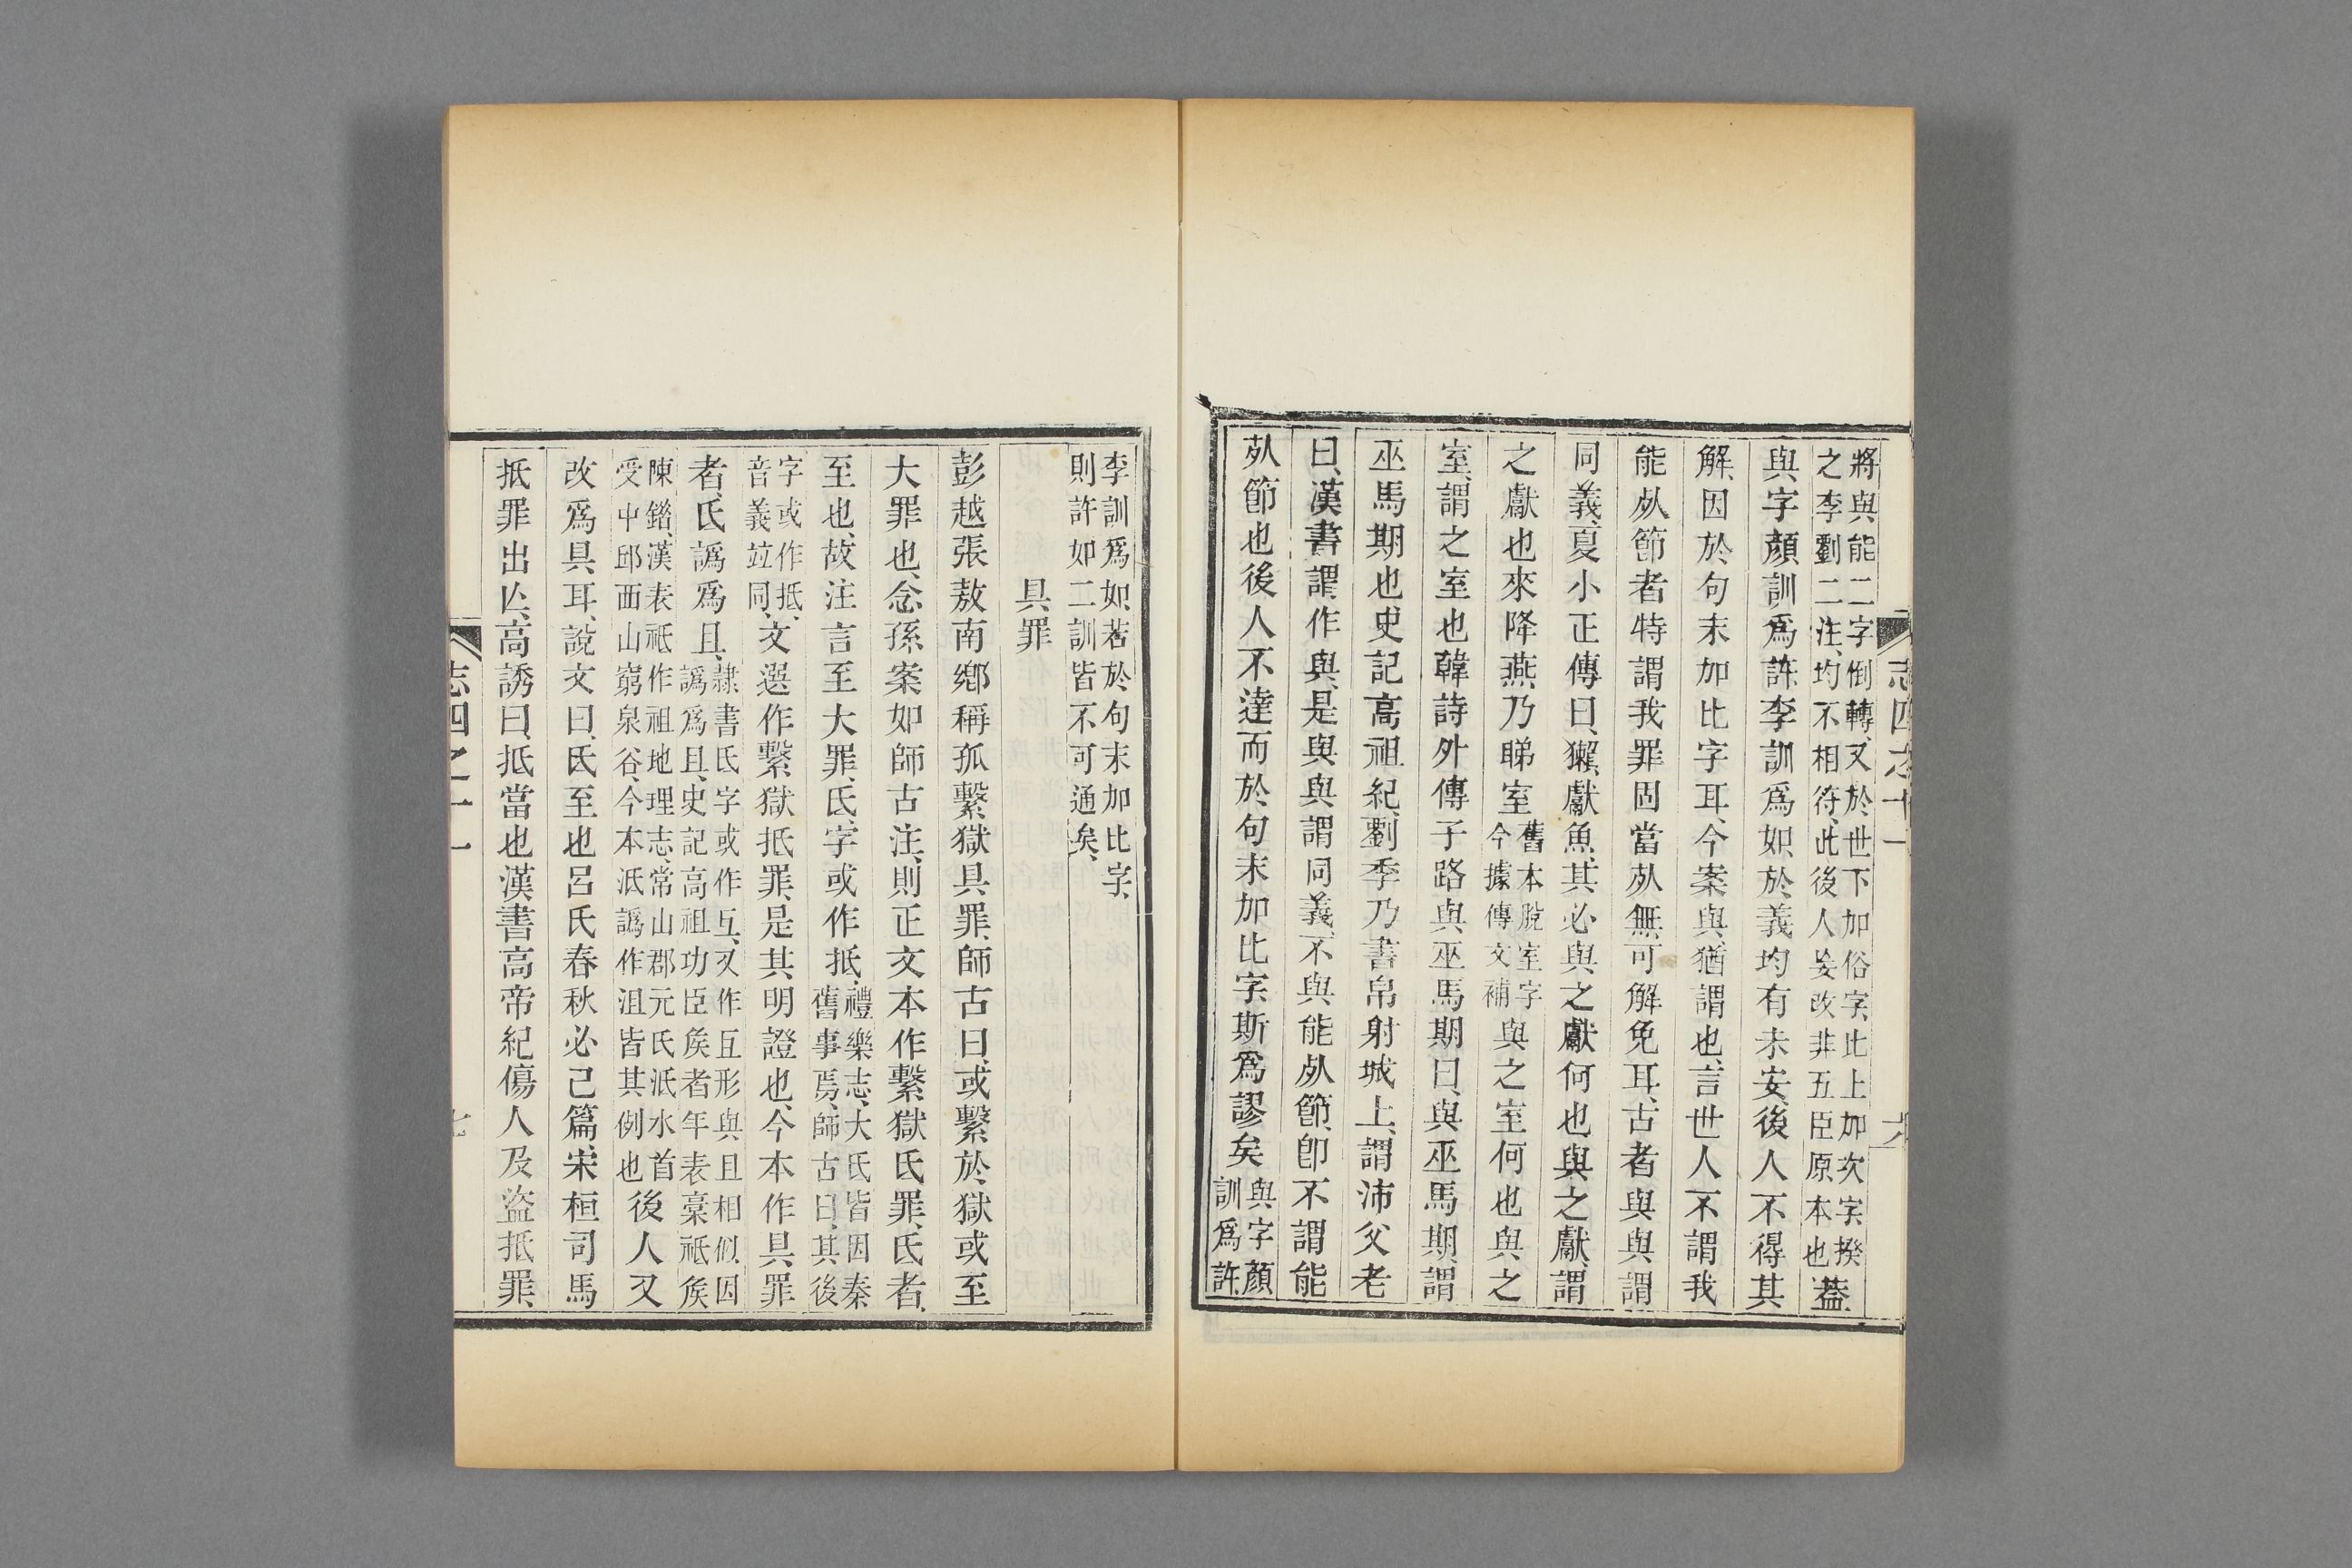 將與能二字倒轉又於世下加俗字比上加次字揆
之李劉二注均不相符此後人妄改非五臣原本也蓋
與字顔訓爲許李訓爲如於義均有未安後人不得其
解因於句末加比字耳今案與猶謂也言世人不謂我
能死節者特謂我罪固當死無可解免耳古者與與謂
同義夏小正傳曰獺獻魚其必與之獻何也與之獻謂
之獻也來降燕乃睇室舊本脫室字今據傳文補與之室何也與之
室謂之室也韓詩外傳子路與巫馬期曰與巫馬期謂
巫馬期也史記高祖紀劉季乃書帛射城上謂沛父老
曰漢書謂作與是與與謂同義不與能死節卽不謂能
死節也後人不達而於句末加比字斯爲謬矣與字顔訓爲許
志四之十一
六
李訓爲如若於句末加比字
則許如二訓皆不可通矣
具罪
彭越張敖南鄉稱孤繫獄具罪師古曰或繫於獄或至
大罪也念孫案如師古注則正文本作繫獄氐罪氐者
至也故注言至大罪氐字或作抵禮樂志大氐皆因秦舊事焉師古曰其後
字或作抵音義竝同文選作繫獄抵罪是其明證也今本作具罪
者氐譌爲且隸書氐字或作互又作㡳形與且相似因譌爲且史記高祖功臣矦者年表槀祗矦
陳鍇漢表祗作祖地理志常山郡元氏泜水首受中邱西山窮泉谷今本泜譌作沮皆其例也後人又
改爲具耳說文曰氐至也呂氏春秋必己篇宋桓司馬
抵罪出亾高誘曰抵當也漢書高帝紀傷人及盜抵罪
志四之十一
七